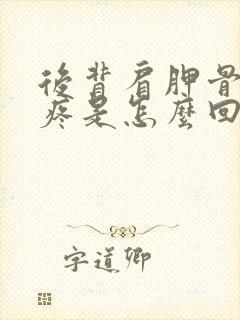 後背肩胛骨
疼是怎麼回
字道卿